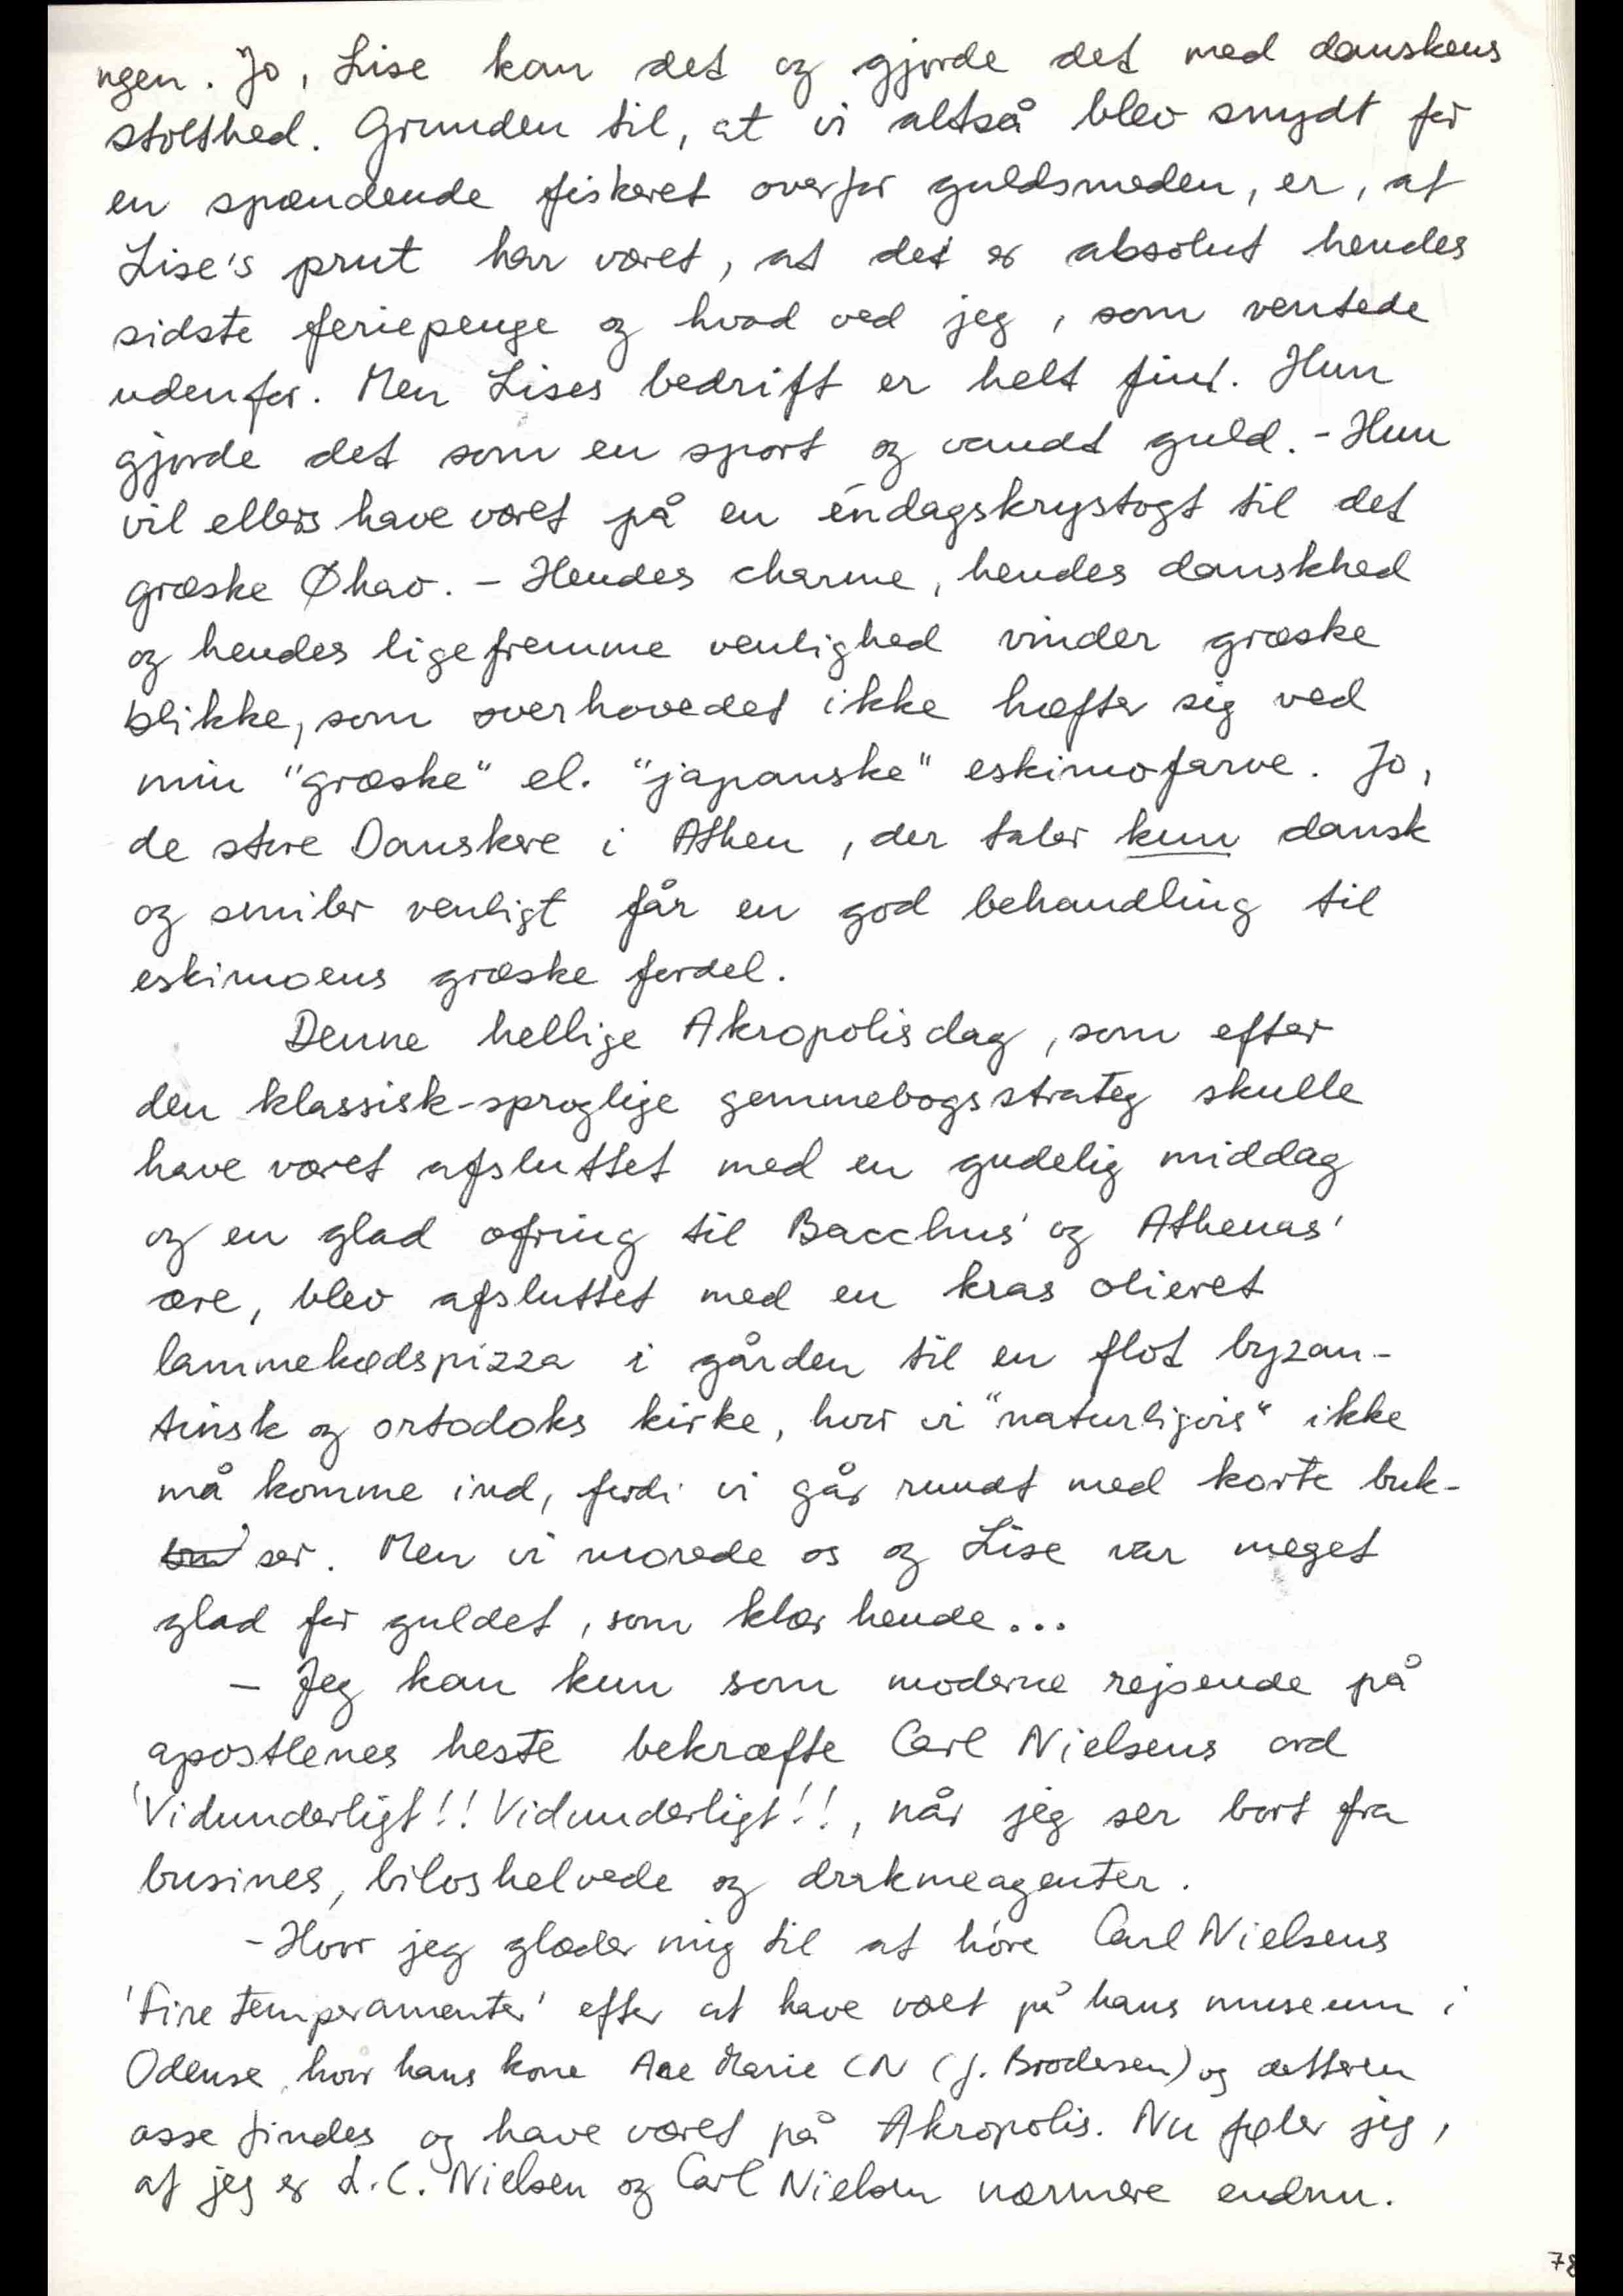 ngen. Jo, Lise kan det og gjorde det med danskens
stolthed. Grunden til, at vi altså blev snydt for
en spændende fiskeret overfor guldsmeden, er, at
Lise's prut har været, at det er absolut hendes
sidste feriepenge og hvad ved jeg, som ventede
udenfor. Men Lises bedrift er helt fint. Hun
gjorde det som en sport og vandt guld. - Hun
vil ellers have været på en éndagskrystogt til det
græske Øhav. - Hendes charme, hendes danskhed
og hendes ligefremme venlighed vinder græske
blikke, som overhovedet ikke hæfter sig ved
min "græske" el. "japanske" eskimofarve. Jo,
de store Danskere i Athen, der taler kun dansk
og smiler venligt får en god behandling til
eskimoens græske fordel.
Denne hellige Akropolisdag, som efter
den klassisk-sproglige gemmebogsstrateg skulle
have været afsluttet med en gudelig middag
og en glad ofring til Bacchus' og Athenas'
ære, blev afsluttet med en kras olieret
lammekødspizza i gården til en flot byzan-
tinsk og ortodoks kirke, hvor vi "naturligvis" ikke
må komme ind, fordi vi går rundt med korte buk-
ser. Men vi morede os og Lise var meget
glad for guldet, som klær hende...
- Jeg kan kun som moderne rejsende på
apostlenes heste bekræfte Carl Nielsens ord
'Vidunderligt!! Vidunderligt!!, når jeg ser bort fra
busines, biloshelvede og drakmeagenter.
- Hvor jeg glæder mig til at höre Carl Nielsens
'Fire temperamenter' efter at have vært på hans museum i
Odense, hvor hans kone Ane Marie CN (f. Brodersen) og datteren
osse findes og have været på Akropolis. Nu føler jeg,
at jeg er L.C. Nielsen og Carl Nielsen nærmere endnu.
78